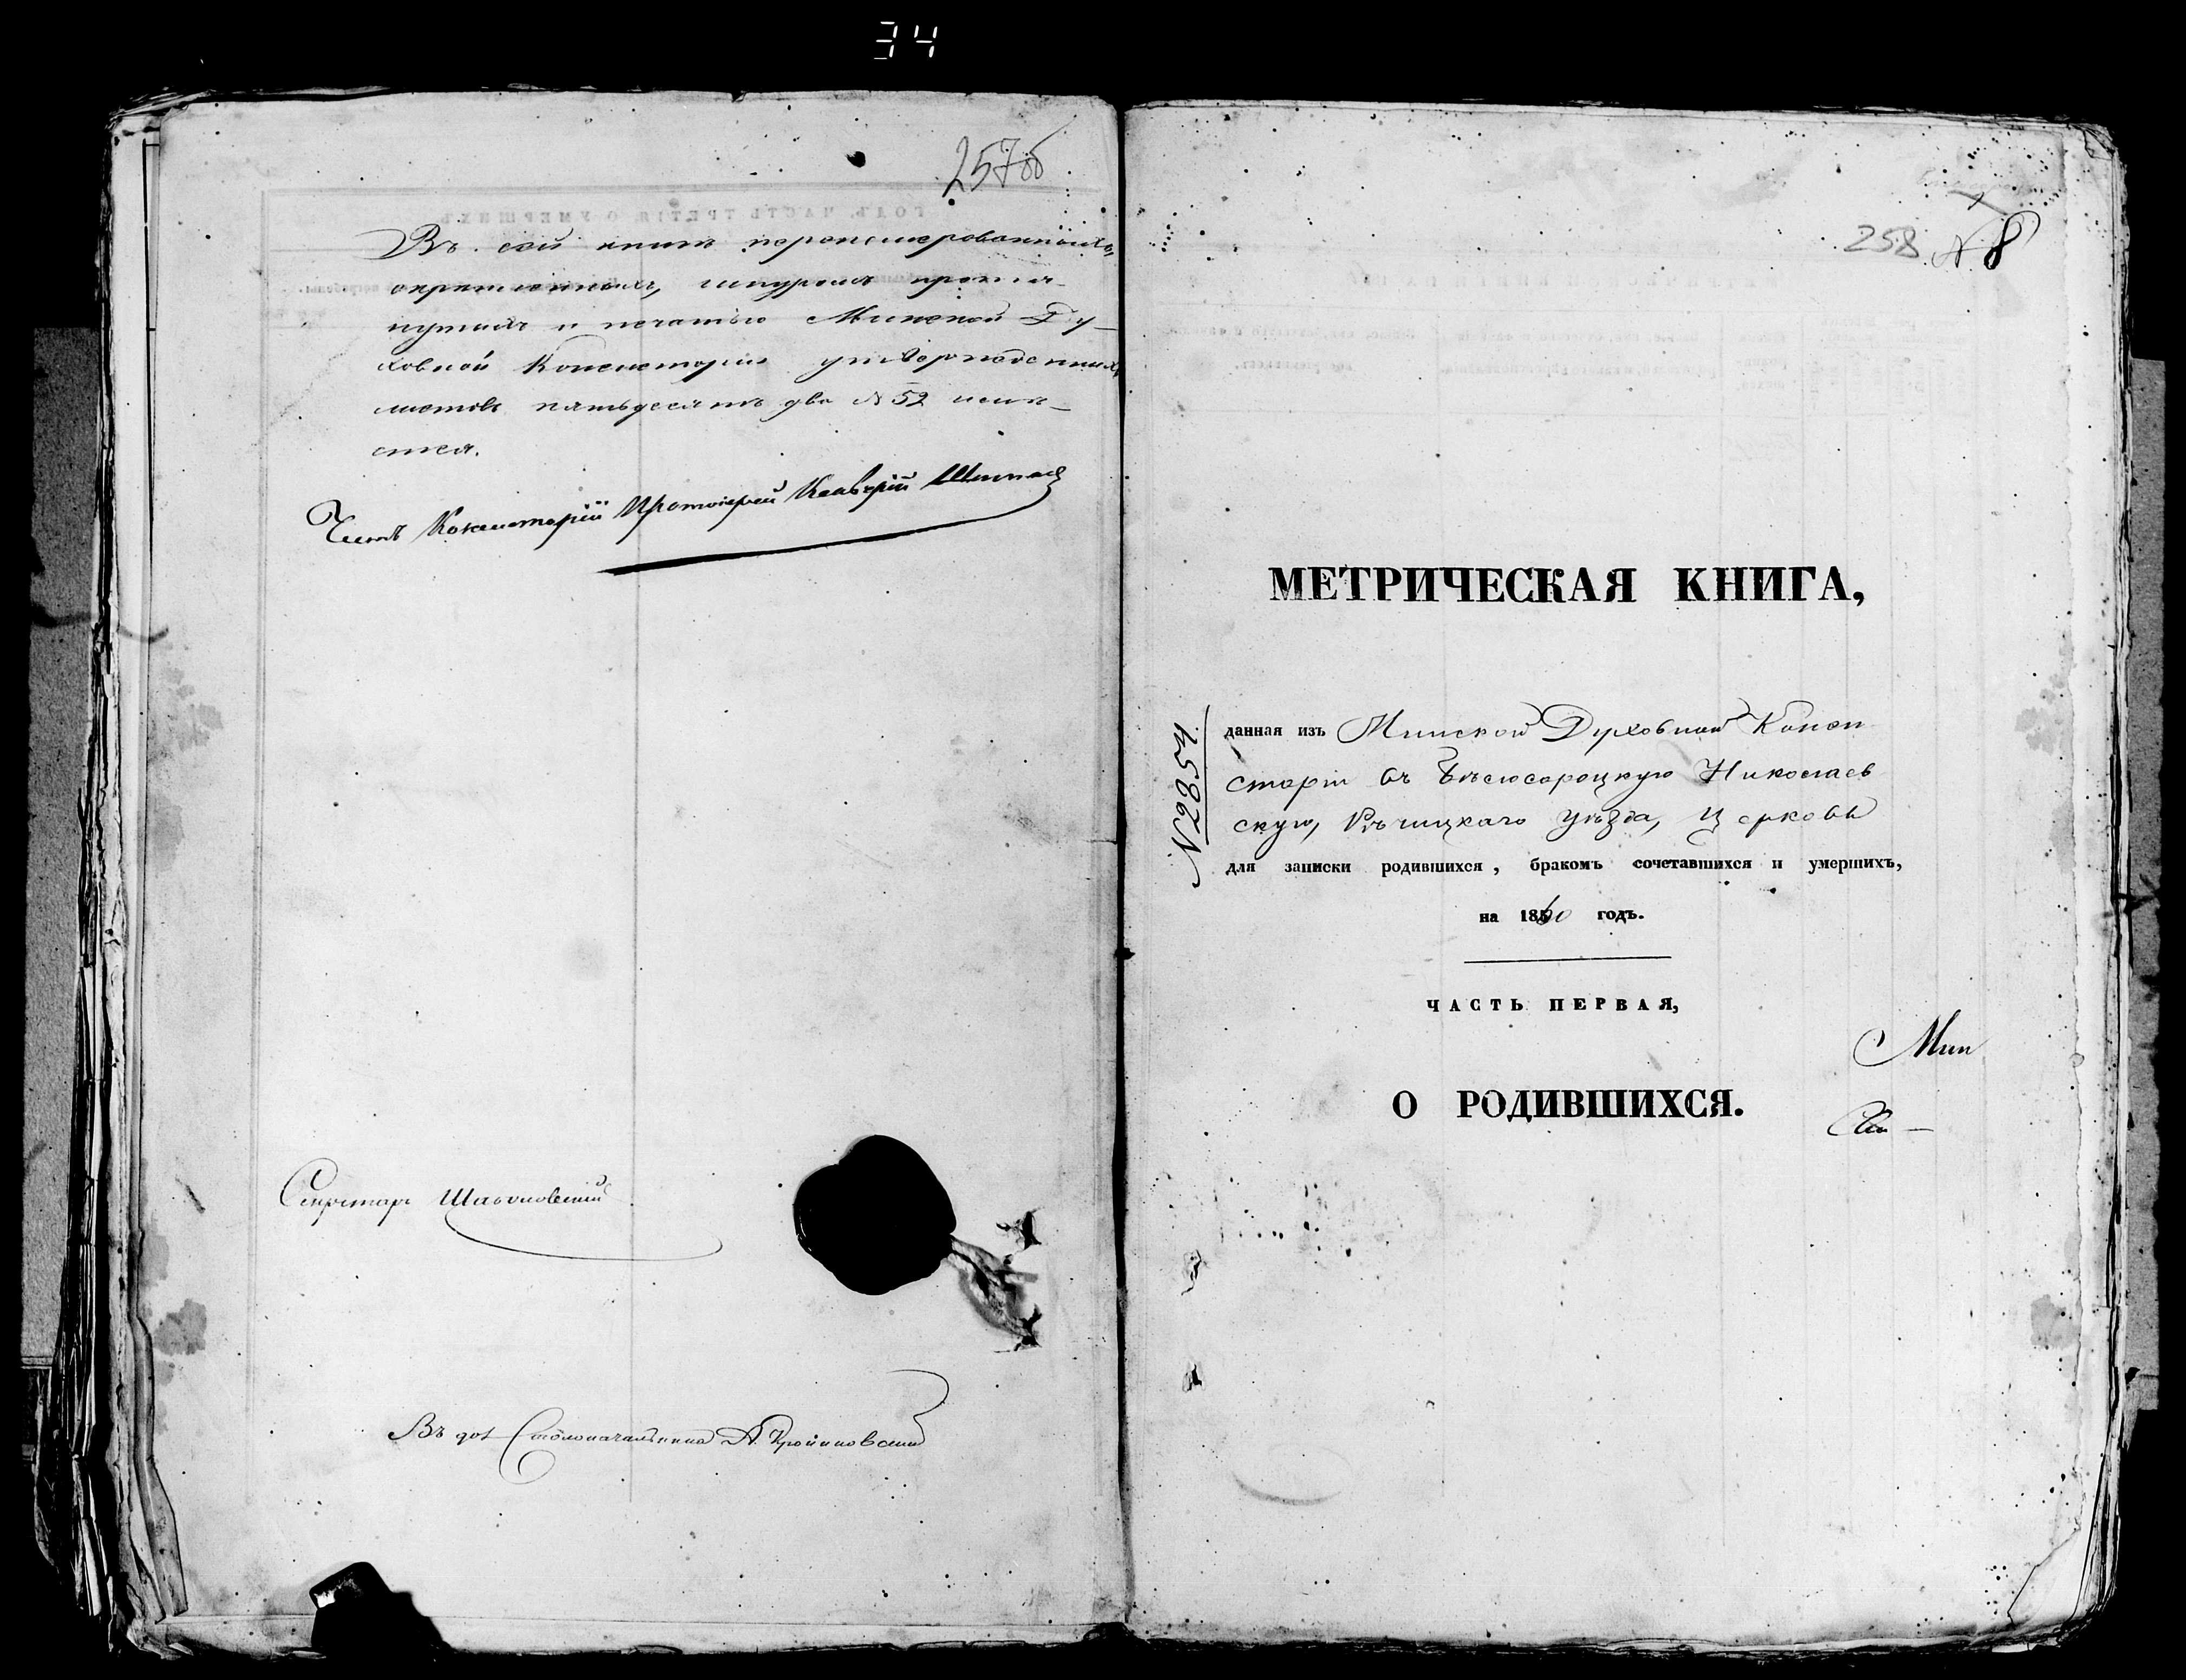 34
257об
Въ сей книгѣ перенумерованныхъ,
скрѣпленныхъ, шнуромъ протя-
нутыхъ и печатью Минской Ду-
ховной Консисторіи утвержденныхъ
листовъ пятьдесятъ два № 52 имѣ-
ется.
Членъ Консисторіи Протоіерей
Секретарь
Въ дол Столоначальника А.
258 № 8
МЕТРИЧЕСКАЯ КНИГА,
№ 2854
данная изъ Минской Духовной Конси
сторіи въ Бѣлосороцкую Николаев
скую, Рѣчицкаго уѣзда, Церковь
для записки родившихся, бракомъ сочетавшихся и умершихъ,
на 1860 годъ.
ЧАСТЬ ПЕРВАЯ,
Мин
О РОДИВШИХСЯ.